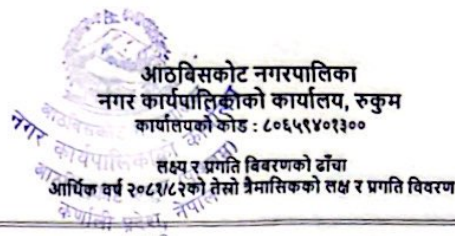 आठबिसकोट नगरपालिका
नगर कार्यपालिकाको कार्यालय, रुकुम
कार्यालयको कोड : ८०६५९४०१३००
लक्ष्य र प्रगति बिबरणको ढाँचा
आर्थिक वर्ष २०८१/८२को तेस्रो त्रैमासिकको लक्ष र प्रगति विवरण
नगर कार्यपालिकाको
कर्णाली प्रदेश, नेपाल